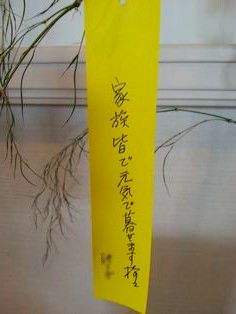 家族皆で元気で暮せます様に